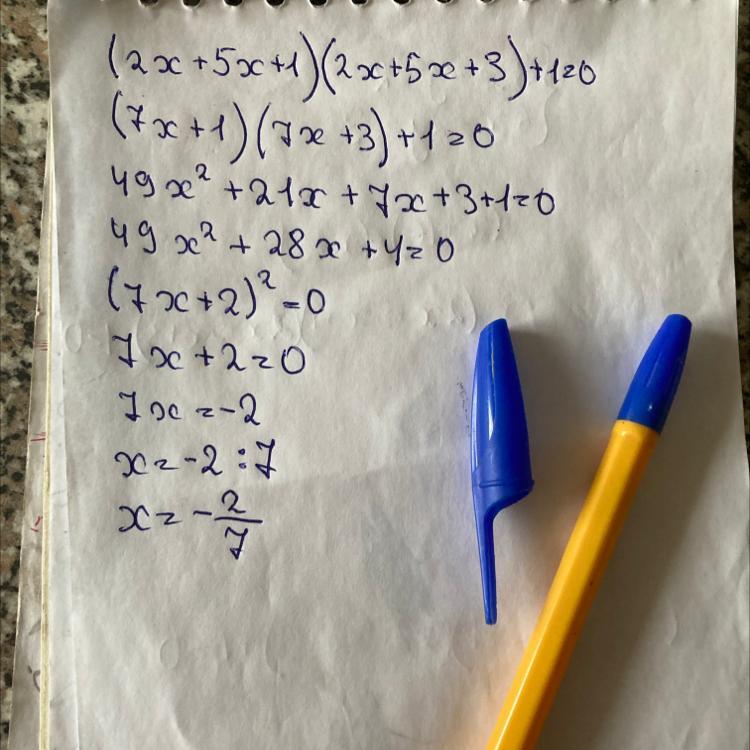 (2x+5x+1)(2x+5x+3)+1=0
(7x+1)(7x+3)+1=0
49x²+21x+7x+3+1=0
49x²+28x+4=0
(7x+2)²=0
7x+2=0
7x=-2
x=-2:7
x=-2/7